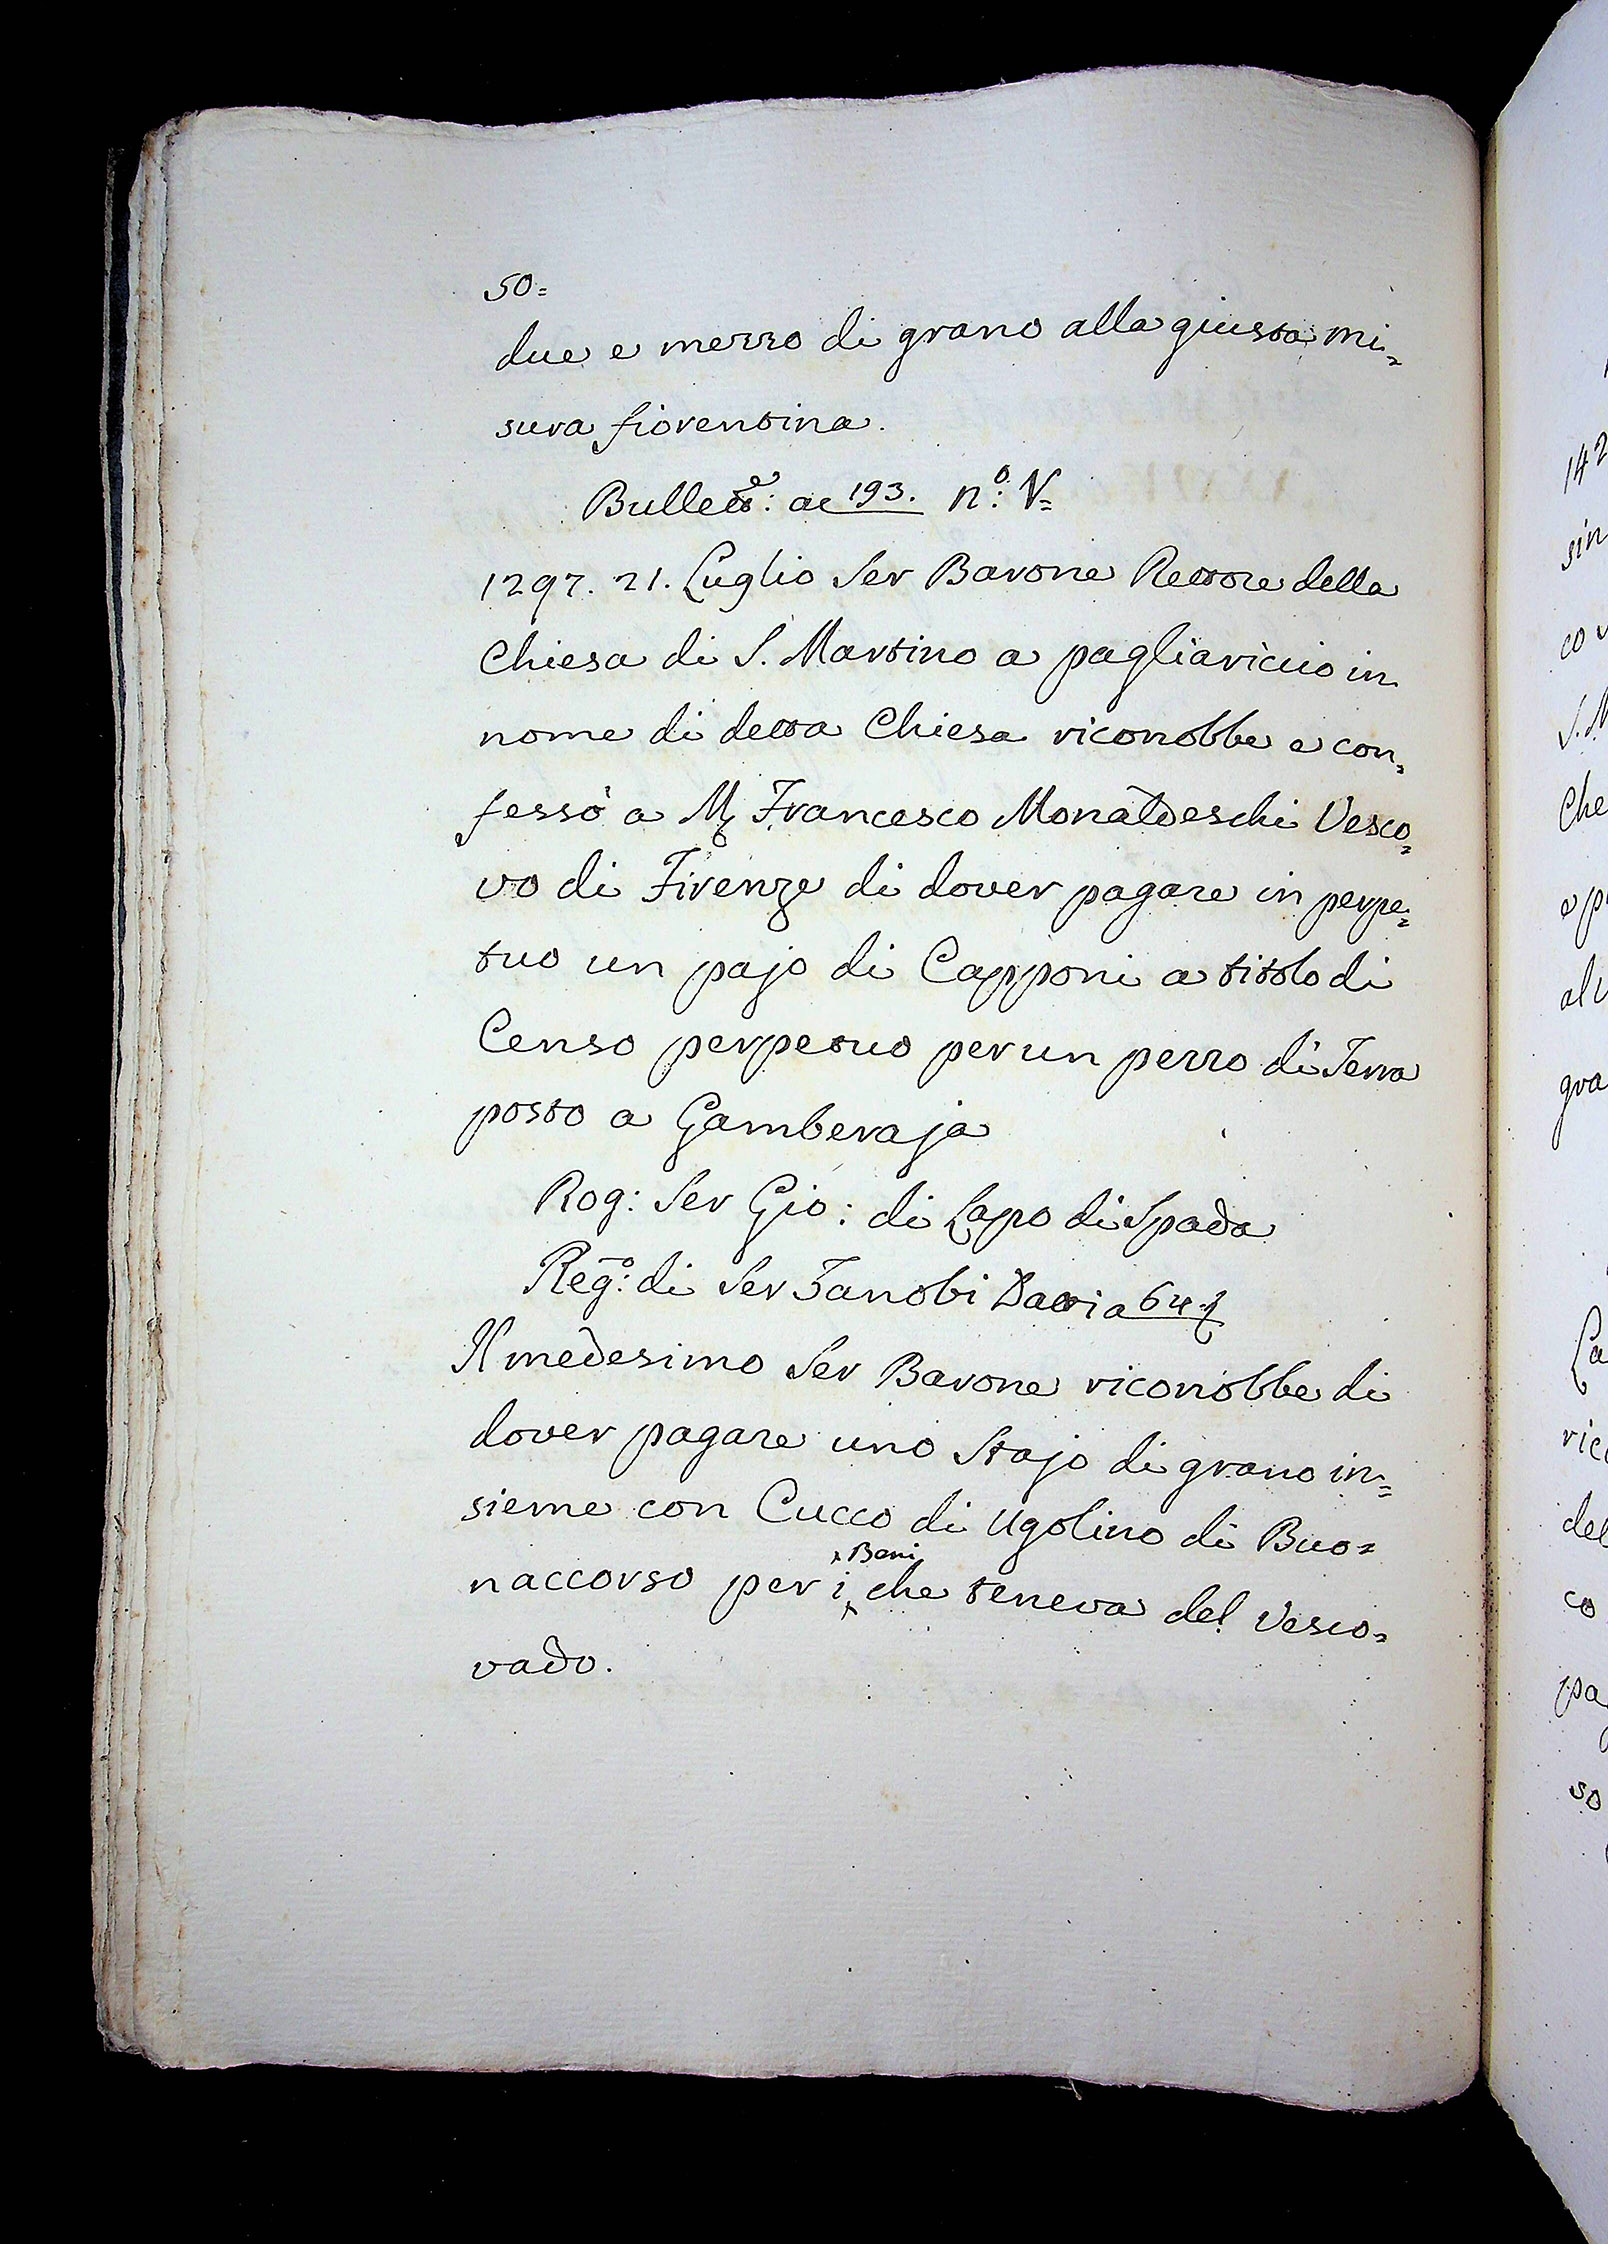 50=
due e mezzo di grano alla giusta mi=
sura fiorentina.
Bullett.ᵉ: a 193. n.º: V=
1297. 21. Luglio Ser Barone Rettore della
Chiesa di S. Martino a pagliariccio in
nome di detta Chiesa riconobbe e con=
fessò a M. Francesco Monaldeschi Vesco=
vo di Firenze di dover pagare in perpe=
tuo un pajo di Capponi a titolo di
Censo perpetuo per un pezzo di Terra
posto a Gamberaja
Rog: Ser Gio: di Lapo di Spada
Reg.º: di Ser Zanobi Dati a 64.
Il medesimo Ser Barone riconobbe di
dover pagare uno Stajo di grano in=
sieme con Cucco di Ugolino di Buo=
naccorso per i Beni che teneva del Vesco=
vado.